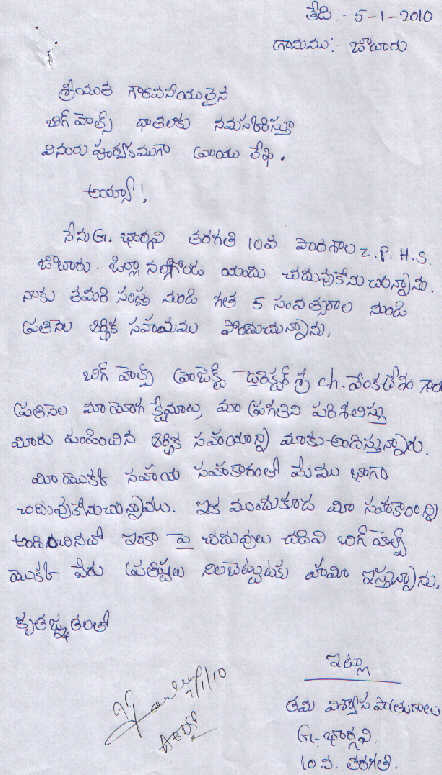 తేది - 5-1-2010
గ్రామము: బొటూరు
శ్రీయుత గౌరవనీయులైన
బిగ్ హెల్ప్ దాతలకు నమస్కరిస్తూ
వినయ పూర్వకముగా వ్రాయు లేఖ.
అయ్యా!,
నేను G. భార్గవి తరగతి 10వ పాఠశాల Z.P.H.S.
జిల్లా నల్గొండ యందు చదువుకొనుచున్నాను.
నాకు తమరి సంస్థ నుండి గత 5 సంవత్సరాల నుండి
ప్రతినెల ఆర్థిక సహాయము పొందుచున్నాను.
బిగ్ హెల్ప్ ప్రాజెక్ట్ డైరెక్టర్ శ్రీ ch. వెంకటేశం గారు
ప్రతినెల మా యోగ క్షేమాలు, మా ప్రగతిని పరిశీలిస్తు
మీరు పంపించిన ఆర్థిక సహాయాన్ని మాకు అందిస్తున్నారు.
మీ యొక్క సహాయ సహకారంతో మేము బాగా
చదువుకొనుచున్నాము. ఇక ముందుకూడ మీ సహకారాన్ని
అందించినచో ఇంకా పై చదువులు చదివి బిగ్ హెల్ప్
యొక్క పేరు ప్రతిష్టలు నిలబెట్టుటకు హామి ఇస్తున్నాను.
కృతజ్ఞతలతో
ఇట్లు
తమ విశ్వాస పాత్రురాలు
G. భార్గవి
10వ. తరగతి.
7/1/10